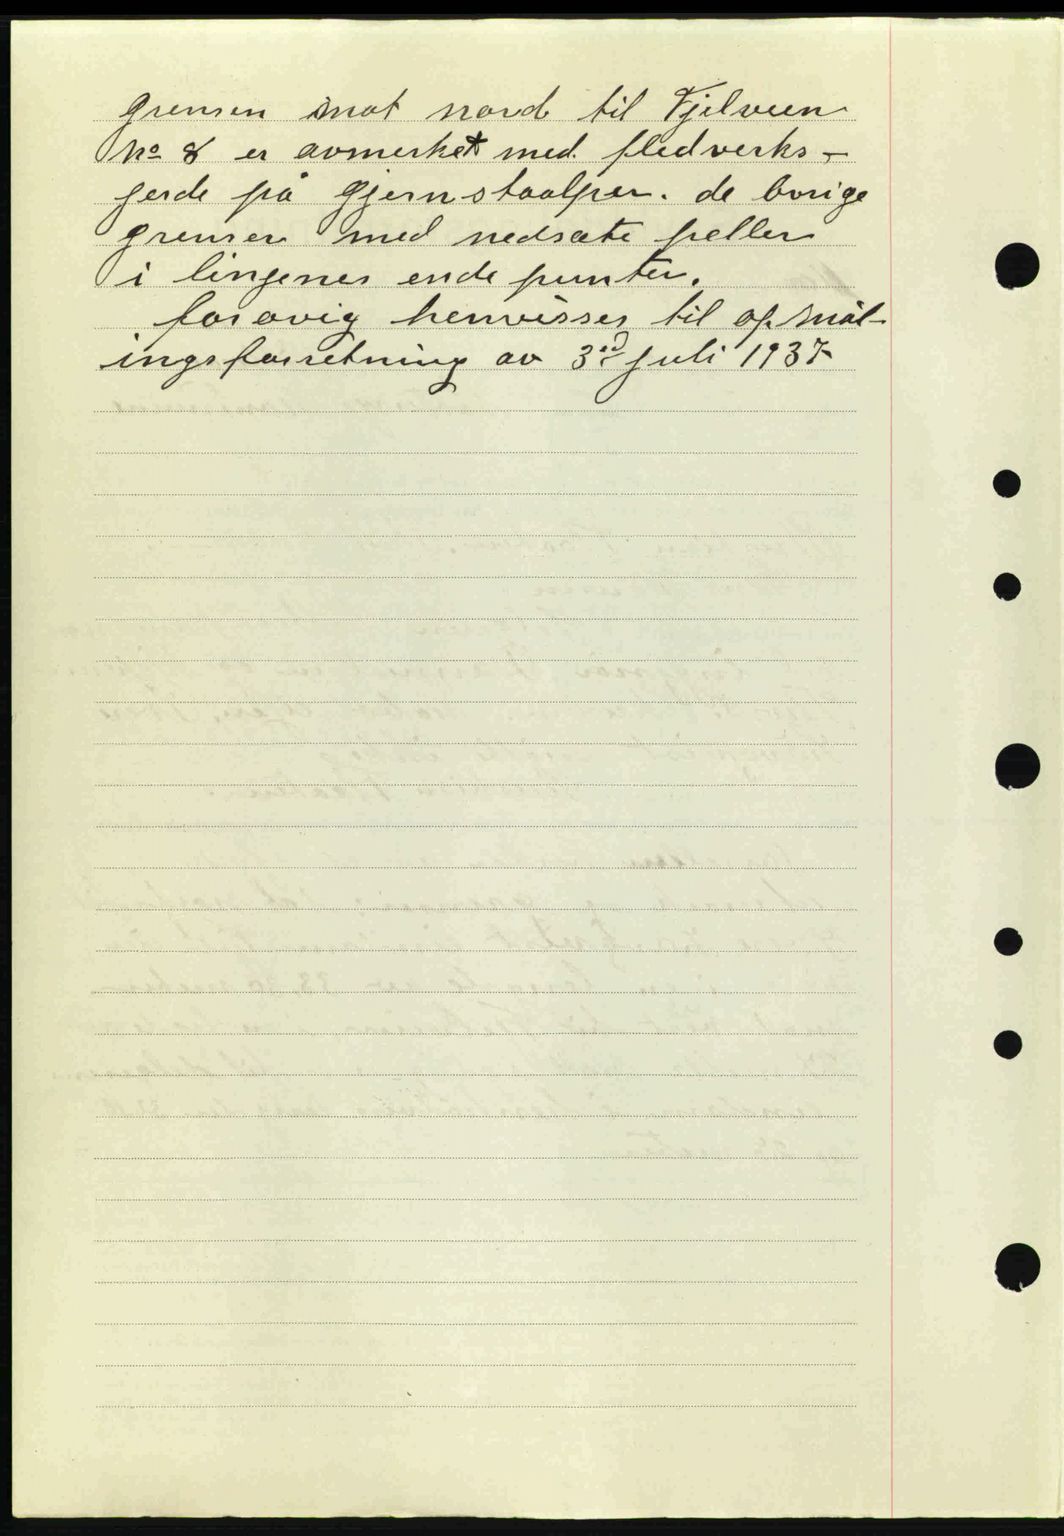 grensen imot nord til Fjelveien
No 8 er avmerket med fledverks-
gjerde på Gjernstaalper. de övrige
grenser med nedsate peller
i lingenes ende punter.
forövrig henvisses til opmål-
ingsforretning av 3rd juli 1937